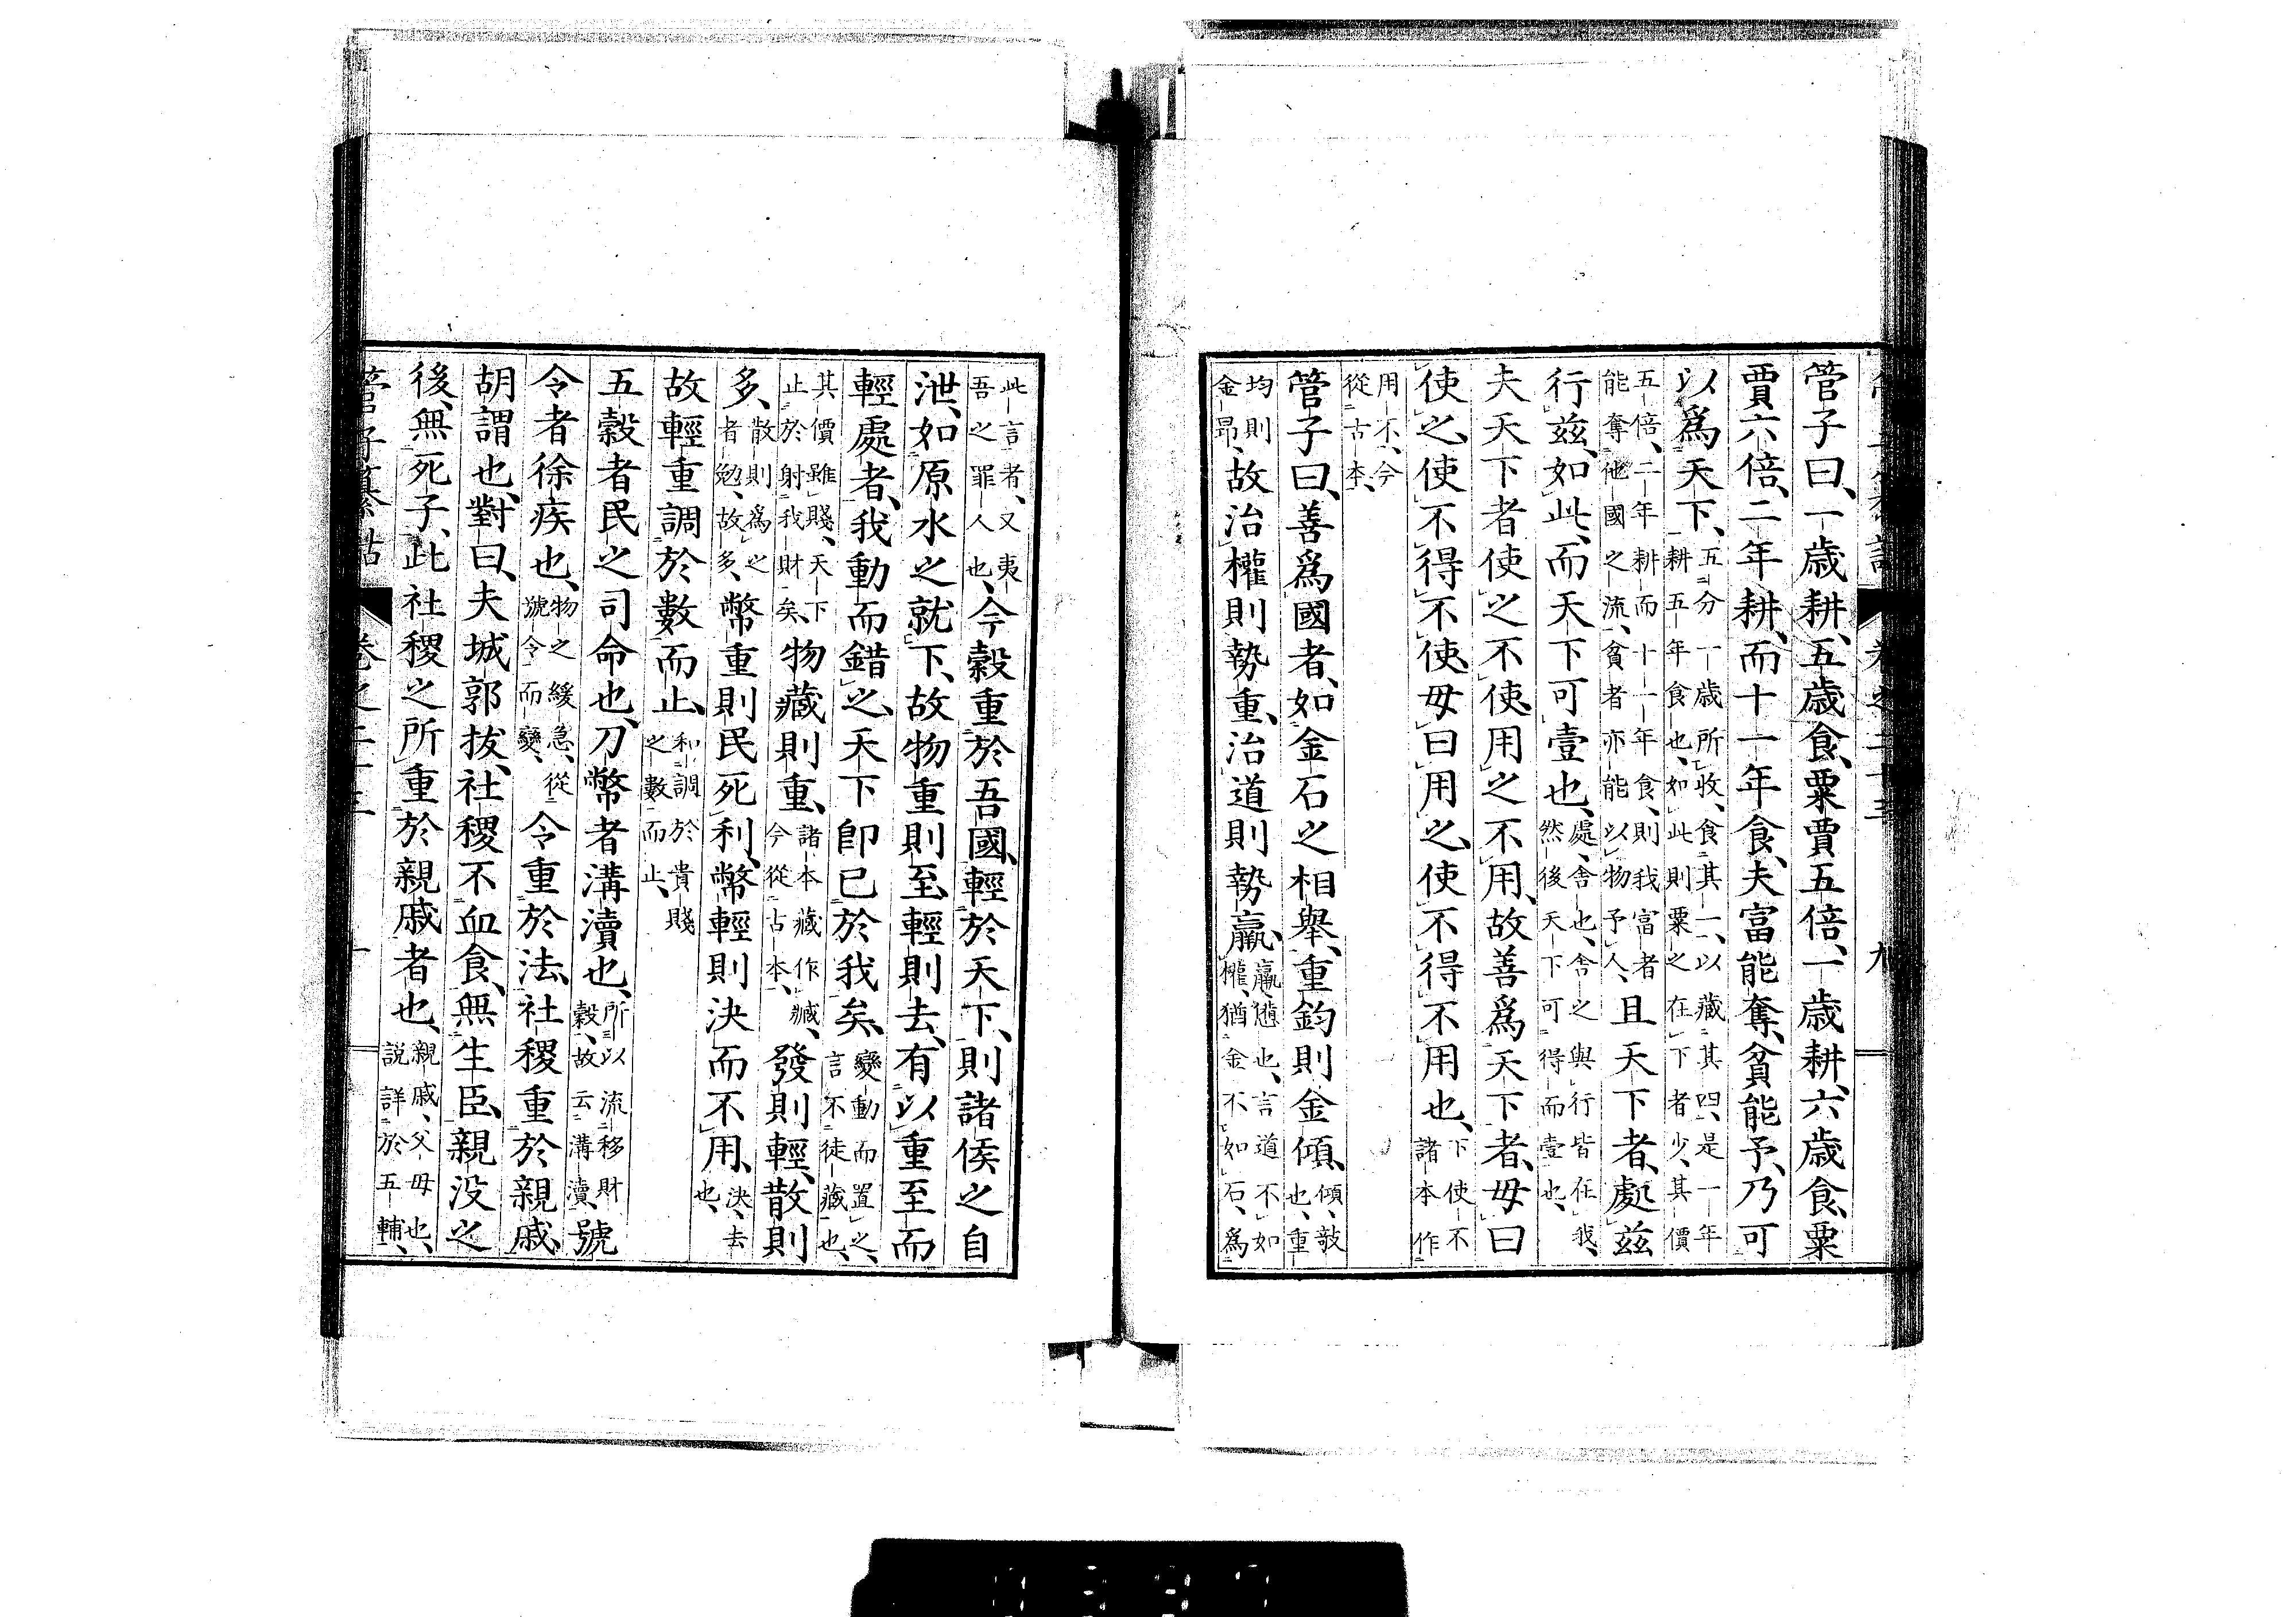 管子纂詁 卷之二十三 九
管子曰、一歲耕、五歲食、粟賈五倍、一歲耕、六歲食、粟
賈六倍、二年耕、而十一年食、夫富能奪、貧能予、乃可
以爲天下、五分一歲所收、食其一、以藏其四、是一年耕五年食也、如此則粟之在下者少、其價
五倍、二年耕而十一年食、則我富者能奪他國之流、貧者亦能以物予人、且天下者、處茲
行茲、如此、而天下可壹也、處、舍也、舍之與行皆在我、然後天下可得而壹也、
夫天下者、使之不使、用之不用、故善爲天下者、毋曰
使之、使不得不使、毋曰用之、使不得不用也、下使不諸本作
用不、今從古本、
管子曰、善爲國者、如金石之相舉、重鈞則金傾、傾、敧也、重
均則金昂、故治權則勢重、治道則勢羸、羸、憊也、言道不如權、猶金不如石、爲
此言者、又夷吾之罪人也、今穀重於吾國、輕於天下、則諸侯之自
泄、如原水之就下、故物重則至、輕則去、有以重至而
輕處者、我動而錯之、天下卽已於我矣、變動而置之、言不徒藏也、
其價雖賤、天下止於射我財矣、物藏則重、諸本藏作臧、今從古本、發則輕、散則
多、散則爲之者勉、故多、幣重則民死利、幣輕則決而不用、決、去也、
故輕重調於數而止、和調於貴賤之數而止、
五穀者民之司命也、刀幣者溝瀆也、所以流移財穀、故云溝瀆、號
令者徐疾也、物之緩急、從號令而變、令重於法、社稷重於親戚、
胡謂也、對曰、夫城郭拔、社稷不血食、無生臣、親沒之
後、無死子、此社稷之所重於親戚者也、親戚、父母也、說詳於五輔、
管子纂詁 卷之二十三 十